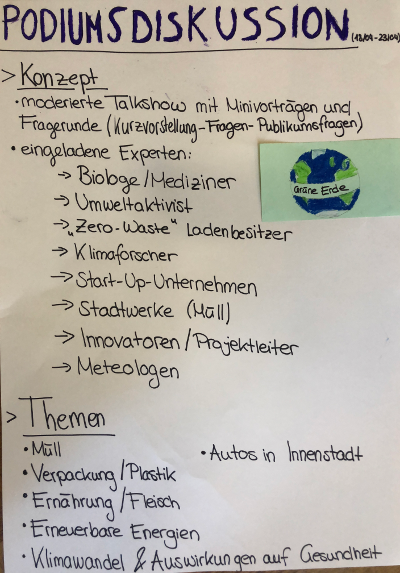 PODIUMSDISKUSSION (18/04-23/04)
> Konzept
• moderierte Talkshow mit Minivorträgen und
Fragerunde (Kurzvorstellung-Fragen-Publikumsfragen)
• eingeladene Experten:
→ Biologe/Mediziner
→ Umweltaktivist
→ „Zero-Waste" Ladenbesitzer
→ Klimaforscher
→ Start-Up-Unternehmen
→ Stadtwerke (Müll)
→ Innovatoren/Projektleiter
→ Meteologen
Grüne Erde
> Themen
• Müll
• Verpackung/Plastik
• Ernährung/Fleisch
• Erneuerbare Energien
• Klimawandel & Auswirkungen auf Gesundheit
• Autos in Innenstadt